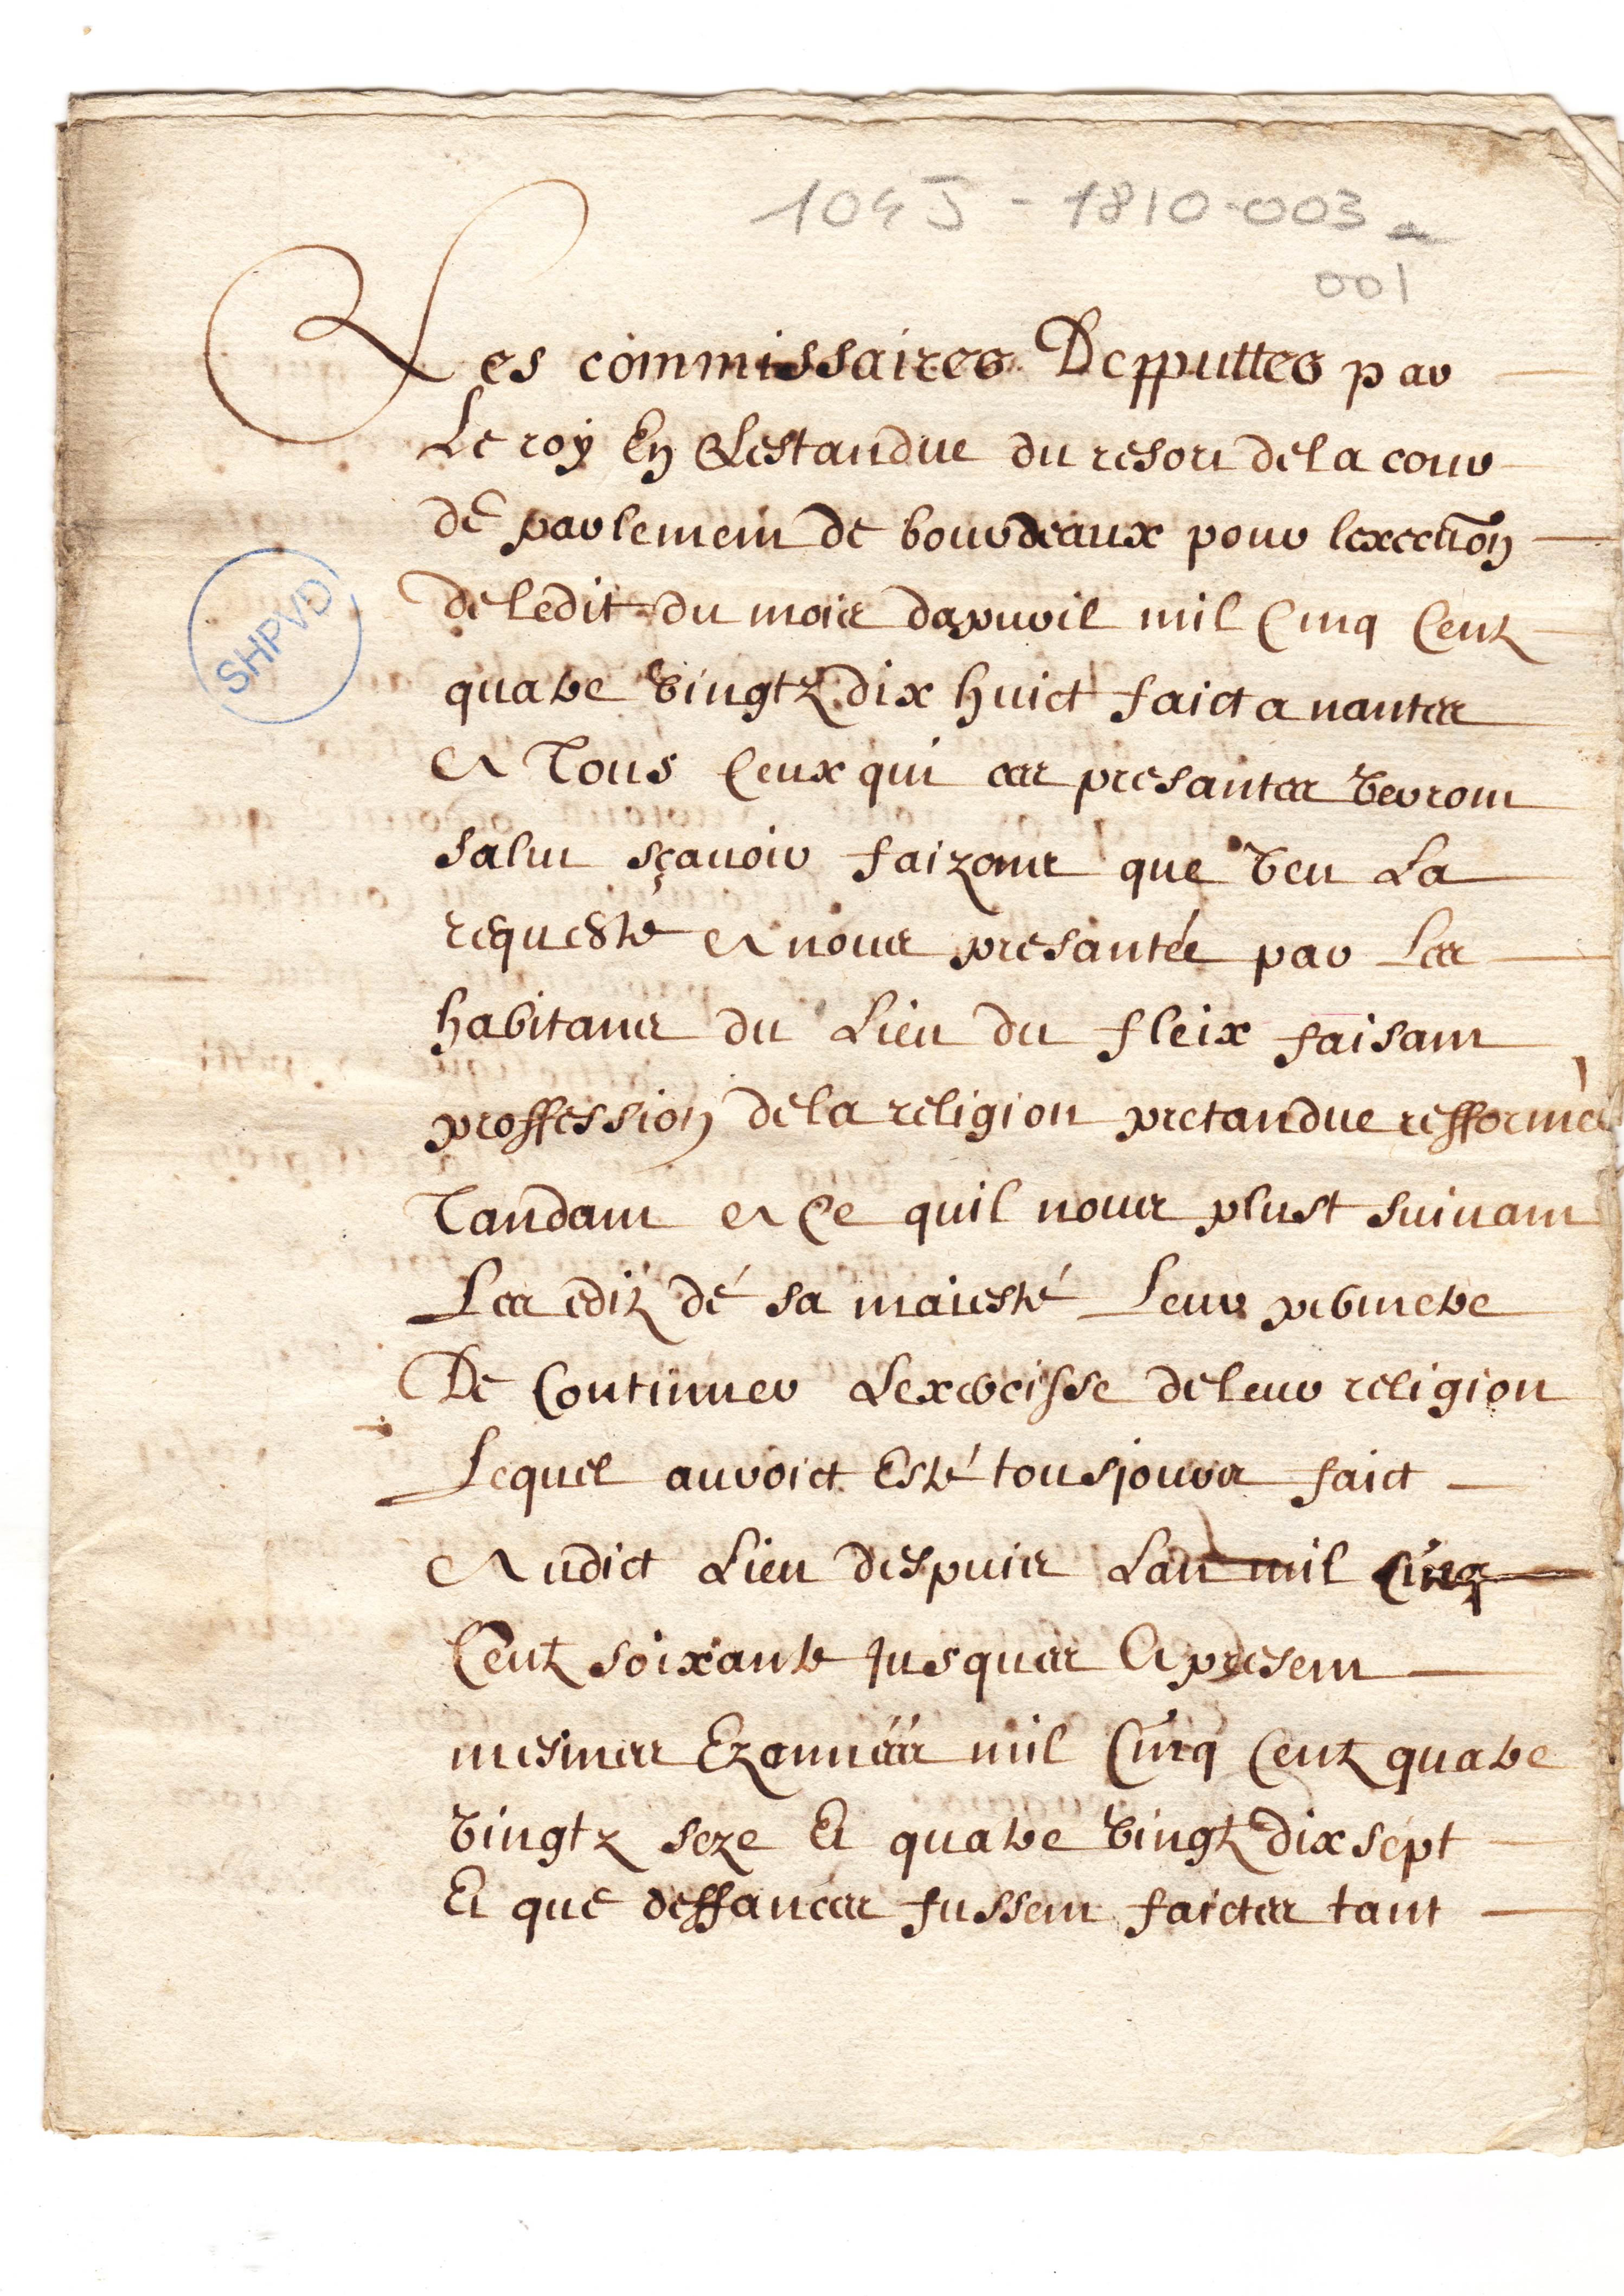 104J - 1810-003
001
Les commissaires Depputtes par
Le roy En Lestandue du resort de la cour
de parlement de bourdeaux pour lexecution
de ledit du mois dapvril mil Cinq Centz
quatre vingtz dix huict faict a nantes
A Tous Ceux qui ces presantes verront
salut sçavoir faizons que veu La
requeste A nous presantée par Les
habitans du Lieu du fleix faisant
SHPVD
proffession de la religion pretandue refformée
Tandant A Ce quil nous plust suivant
Les editz de sa maiesté Leur permetre
De Continuer Lexercisse de leur religion
Lequel auroict Esté tousjours faict
Audict Lieu despuis Lan mil Cinq
Centz soixante Jusques A present
mesmes Ez années mil Cinq Centz quatre
vingtz seze Et quatre vingtz dix sept
Et que deffances fussent faictes tant